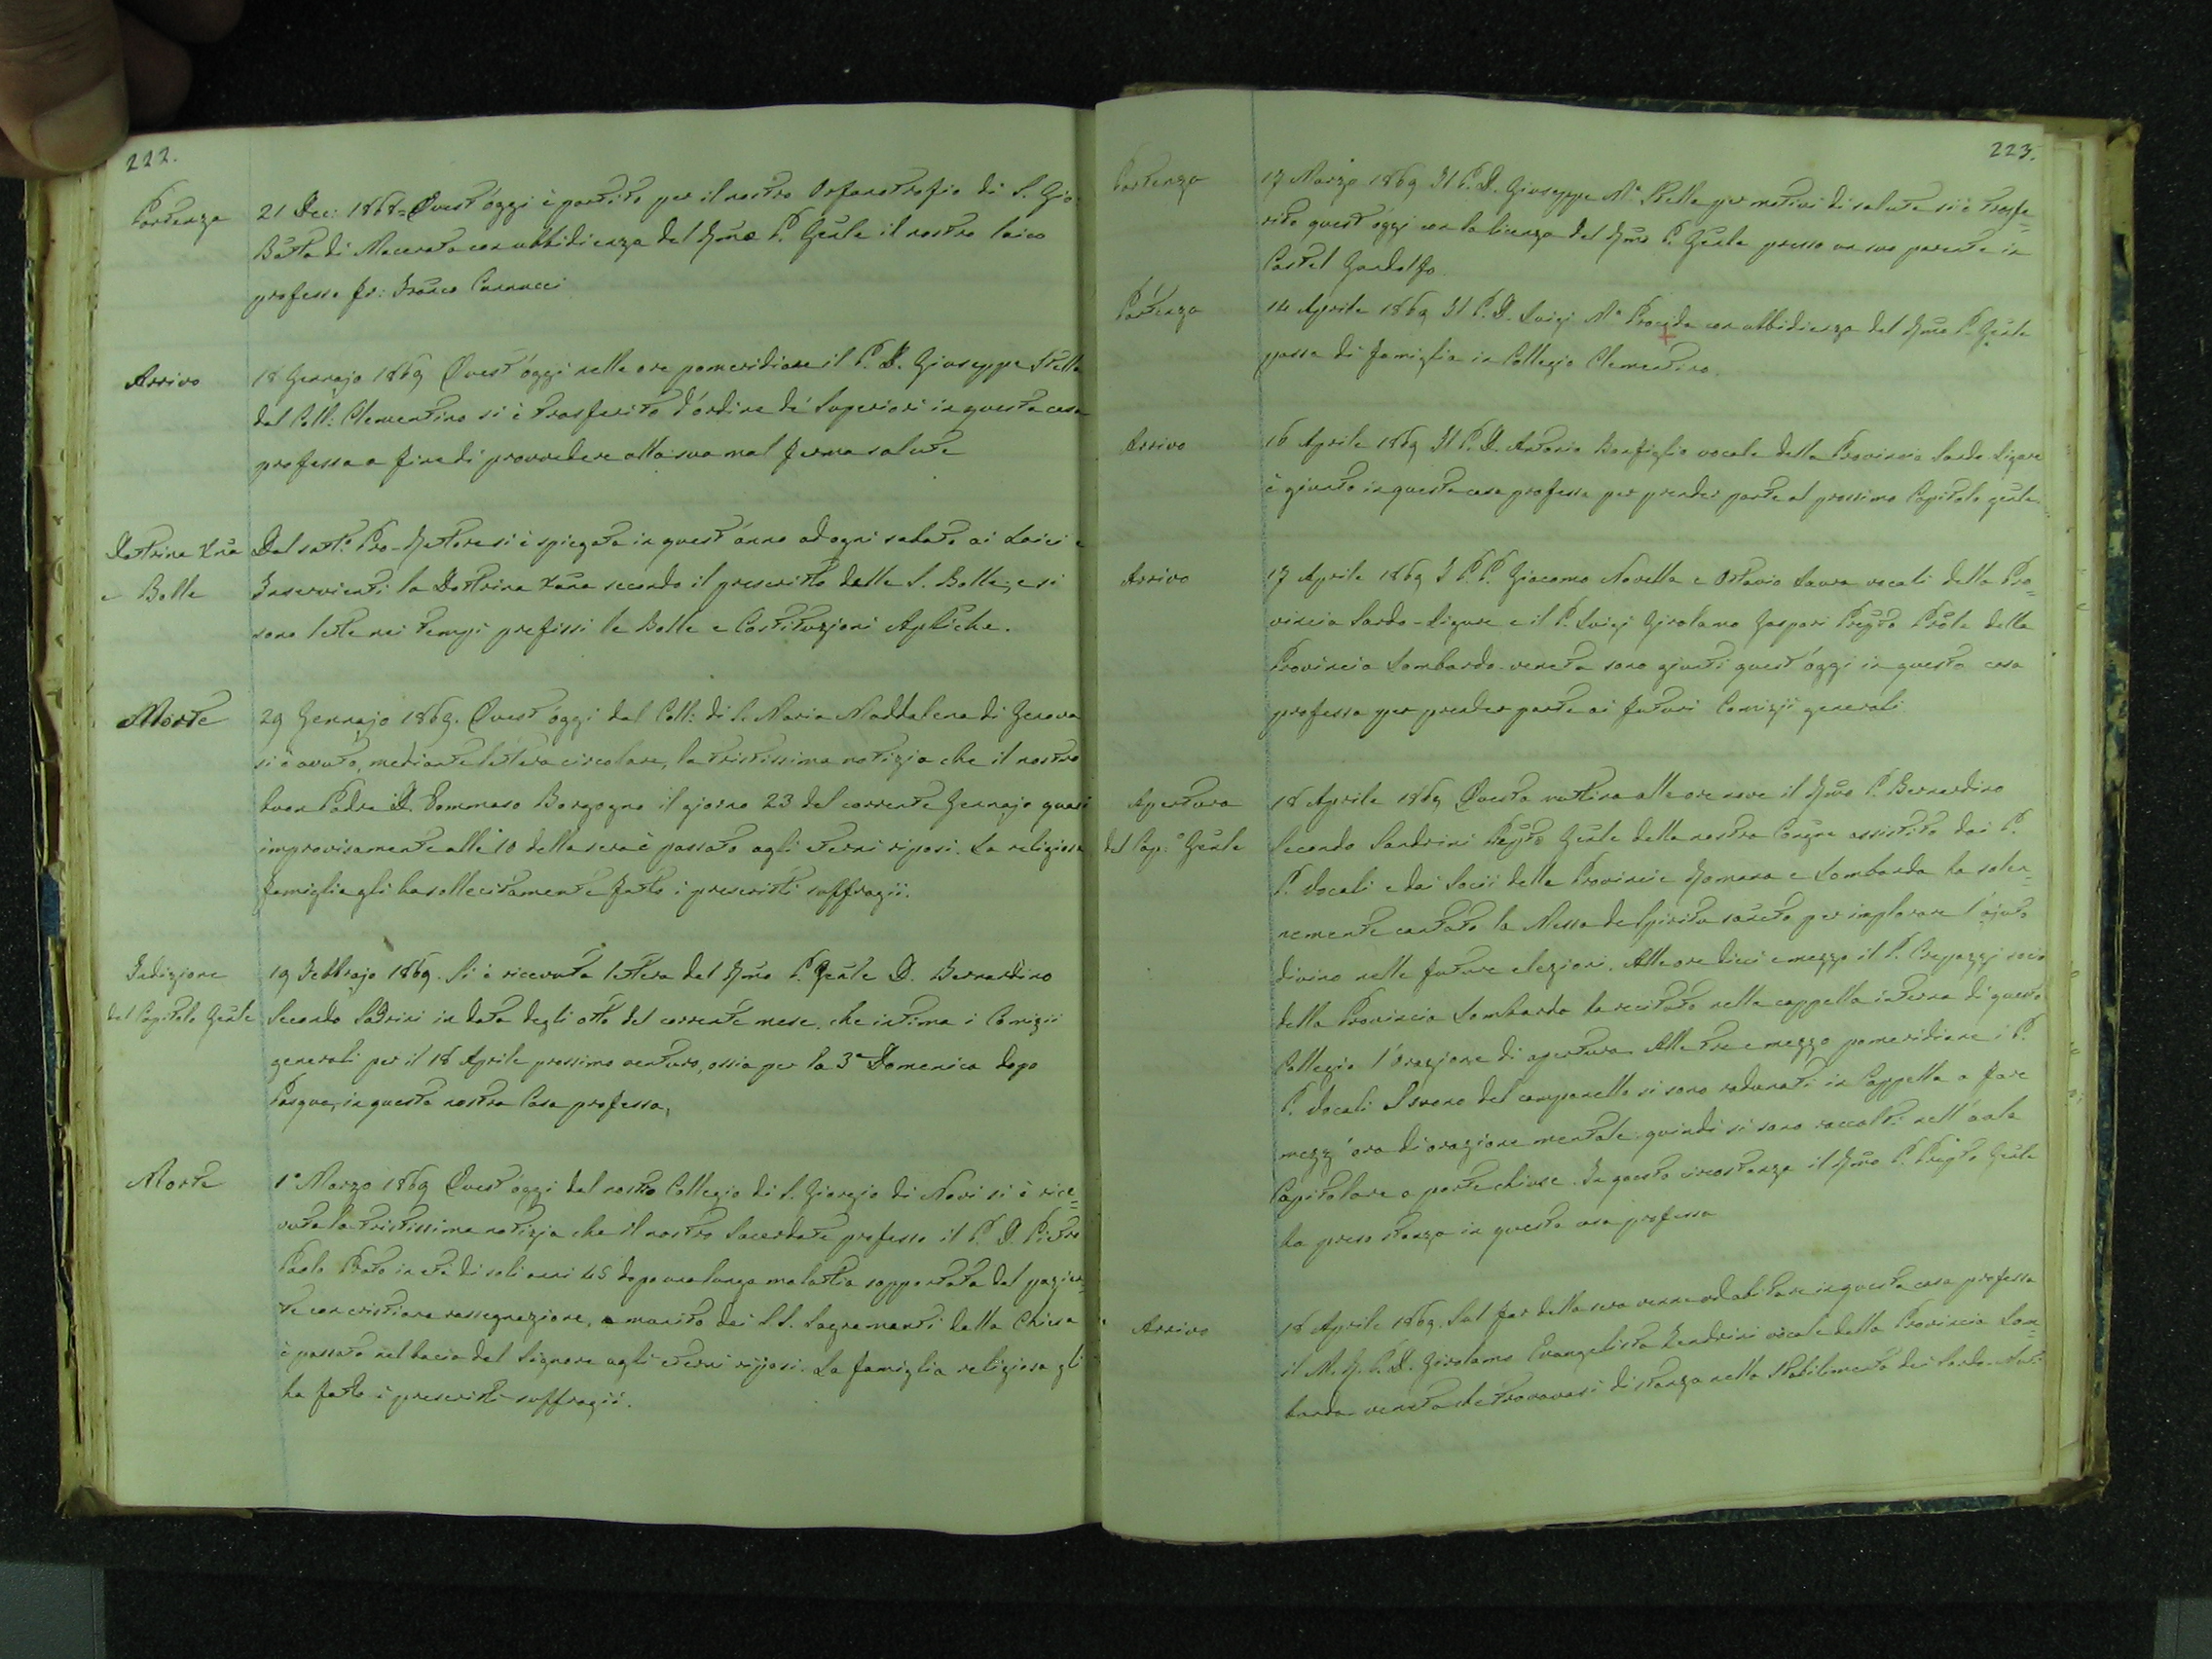 222.
Partenza
21 Dec: 1868 = Quest'oggi è partito per il nostro Orfanotrofio di S. Gio:
Batta di Macerata con ubbidienza del Rmo P. Gnle il nostro laico
professo Fr: Franco
Arrivo
18 Gennajo 1869 Quest'oggi nelle ore pomeridiane il P. D. Giuseppe Stella
dal Coll: Clementino si è trasferito d'ordine de' Superiori in questa casa
professa a fine di provvedere alla sua mal ferma salute
Dottrina Xna
e Bolle
Dal sudt.o Pro-Rettore si è spiegata in quest'anno ad ogni sabato ai Laici e
Inservienti la Dottrina Xana secondo il prescritto delle S. Bolle, e si
sono lette nei tempi prefissi le Bolle e Costituzioni Apliche.
Morte
29 Gennajo 1869. Quest'oggi dal Coll: di S. Maria Maddalena di Genova
si è avuto, mediante lettera circolare, la tristissima notizia che il nostro
buon Padre D. Tommaso Borgogno il giorno 23 del corrente Gennajo quasi
improvisamente alle 10 della sera è passato agli eterni riposi. La religiosa
famiglia gli ha sollecitamente fatto i prescritti suffragii.
Indizione
del Capitolo Gnle
19 Febbrajo 1869. Si è ricevuta lettera del Rmo P. Gnle D. Bernardino
Secondo Sandrini in data degli otto del corrente mese, che intima i Comizii
generali per il 18 Aprile prossimo venturo, ossia per la 3a Domenica dopo
Pasqua, in questa nostra Casa professa,
Morte
1° Marzo 1869 Quest'oggi dal nostro Collegio di S. Giorgio di Novi si è rice=
vuta la tristissima notizia che il nostro Sacerdote professo il P. D. Pietro
Paolo Prato in età di soli anni 45 dopo una lunga malattia sopportata dal pazien=
te con cristiana rassegnazione, e munito dei S.S. Sagramenti della Chiesa
è passato nel bacio del Signore agli eterni riposi. La famiglia religiosa gli
ha fatto i prescritti suffragii.
223.
Partenza
17 Marzo 1869 Il P. D. Giuseppe Ma Stella per motivi di salute si è trasfe=
rito quest'oggi con la licenza del Rmo P. Gnle presso un suo parente in
Castel Gandolfo.
Partenza
14 Aprile 1869 Il P. D. Luigi Ma Procida con ubbidienza del Rmo P. Gnle
passa di famiglia in Collegio Clementino.
Arrivo
16 Aprile 1869 Il P. D. Antonio Bonfiglio vocale della Provincia Sardo Ligure
è giunto in questa casa professa per prender parte al prossimo Capitolo gnle.
Arrivo
17 Aprile 1869 I P. P. Giacomo Novella e Ottavio Saura vocali della Pro=
vincia Sardo-Ligure e il P. Luigi Girolamo Gaspari Prepto Prole della
Provincia Lombardo-veneta sono giunti quest'oggi in questa casa
professa per prender parte ai futuri Comizii generali
Apertura
del Cap.o Gnle
18 Aprile 1869 Questa mattina alle ore nove il Rmo P. Bernardino
Secondo Sandrini Prepto Gnle della nostra Congne assistito dai P.
P. Vocali e dai Socii delle Provincie Romana e Lombarda ha solen=
nemente cantato la Messa de Spiritu sancto per implorare l'ajuto
divino nelle future elezioni. Alle ore dieci e mezzo il P. Crepazzi socio
della Provincia Lombarda ha recitato nella cappella interna di questo
Collegio l'orazione di apertura. Alle tre e mezzo pomeridiane i P.
P. Vocali al suono del campanello si sono radunati in Cappella a fare
mezz'ora di orazione mentale: quindi si sono raccolti nell'aula
Capitolare a porte chiuse. In questa circostanza il Rmo P. Prepto Gnle
ha preso stanza in questa casa professa
Arrivo
18 Aprile 1869. Sul far della sera venne ad abitare in questa casa professa
il M. R. P. D. Girolamo Evangelista Zendrini vocale della Provincia Lom=
bardo-veneta che trovavasi di stanza nello Stabilimento dei Sordo-Muti